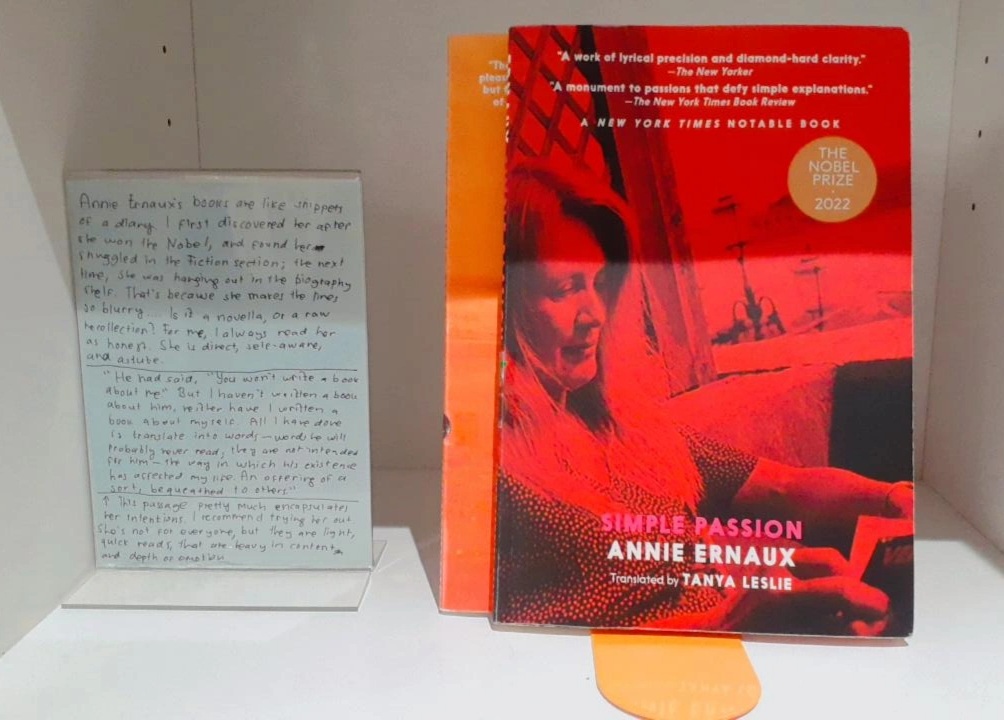 Annie Ernaux's books are like snippets
of a diary. I first discovered her after
she won the Nobel, and found her
snuggled in the Fiction section; the next
time, she was hanging out in the biography
shelf. That's because she makes the lines
so blurry... Is it a novella, or a raw
recollection? For me, I always read her
as honest. She is direct, self-aware,
and astute.
"He had said, "You won't write a book
about me" But I haven't written a book
about him, neither have I written a
book about myself. All I have done
is translate into words—words he will
probably never read; they are not intended
for him—the way in which his existence
has affected my life. An offering of a
sort, bequeathed to others."
↑ This passage pretty much encapsulates
her intentions. I recommend trying her out.
She's not for everyone, but they are light,
quick reads, that are heavy in content
and depth of emotion
"A work of lyrical precision and diamond-hard clarity."
—The New Yorker
"A monument to passions that defy simple explanations."
—The New York Times Book Review
A NEW YORK TIMES NOTABLE BOOK
THE
NOBEL
PRIZE
·
2022
SIMPLE PASSION
ANNIE ERNAUX
Translated by TANYA LESLIE
but
of